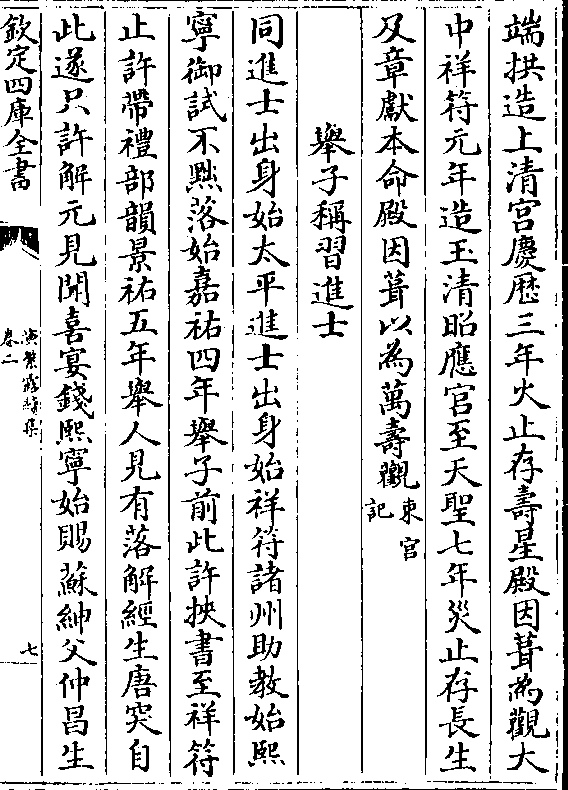 端拱造上清宫慶厯三年火止存壽星殿因葺為觀大
中祥符元年造玉清昭應宫至天聖七年災止存長生
及章獻本命殿因葺以為萬壽觀東宫記
舉子稱習進士
同進士出身始太平進士出身始祥符諸州助教始熙
寧御試不黜落始嘉祐四年舉子前此許挾書至祥符
止許帶禮部韻景祐五年舉人見有落解經生唐突自
此遂只許解元見聞喜宴錢熙寧始賜蘇紳父仲昌生
欽定四庫全書
演繁露續集
卷二
七